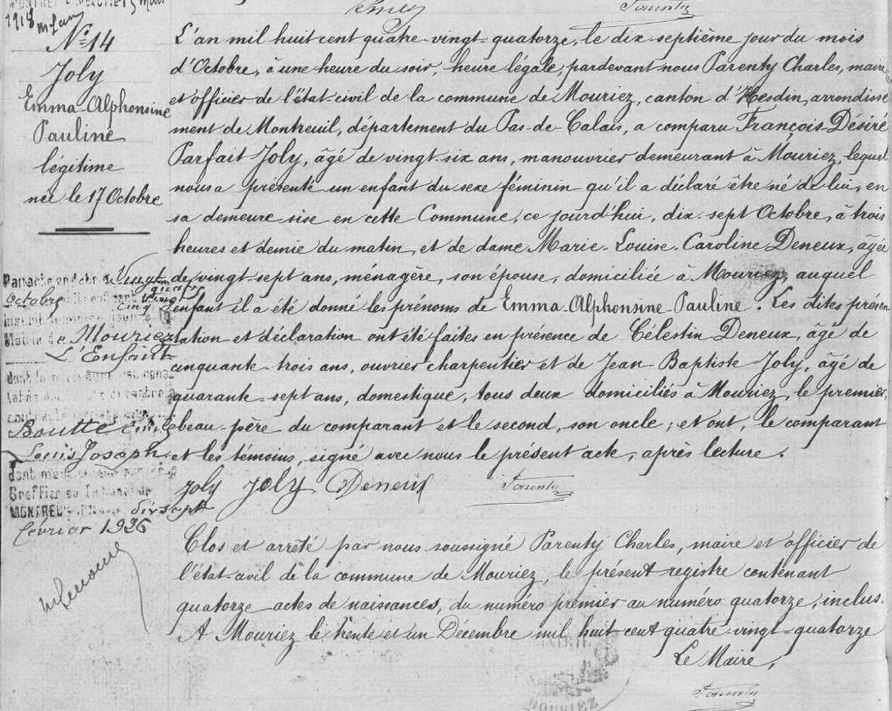 1918
N° 14
Joly
Emma Alphonsine
Pauline
légitime
née le 17 Octobre
L'an mil huit cent quatre-vingt-quatorze, le dix septième jour du mois
d'Octobre, à une heure du soir, heure légale, pardevant nous Parenty Charles, maire
et officier de l'état-civil de la commune de Mouriez, canton d'Hesdin, arrondisse
ment de Montreuil, département du Pas-de-Calais, a comparu François-Désiré
Parfait Joly, âgé de vingt six ans, manouvrier demeurant à Mouriez, lequel
nous a présenté un enfant du sexe féminin qu'il a déclaré être né de lui, en
sa demeure sise en cette Commune, ce jourd'hui, dix-sept Octobre, à trois
heures et demie du matin, et de dame Marie-Louise-Caroline Deneux, âgée
de vingt-sept ans, ménagère, son épouse, domiciliée à Mouriez, auquel
enfant il a été donné les prénoms de Emma-Alphonsine-Pauline. Les dites présen
tation et déclaration ont été faites en présence de Célestin Deneux, âgé de
cinquante-trois ans, ouvrier charpentier et de Jean-Baptiste Joly, âgé de
quarante-sept ans, domestique, tous deux domiciliés à Mouriez, le premier,
beau-père du comparant et le second, son oncle; et ont, le comparant
et les témoins, signé avec nous le présent acte, après lecture.
Joly Joly Deneux Parenty
Vingt
quatre
Octobre vingt
Cinq
Mairie de Mouriez
L'Enfant
Boutte Emile
Louis Joseph
dont
Greffier
MONTREUIL dix sept
février 1926
Clos et arrêté par nous soussigné Parenty Charles, maire et officier de
l'état-civil de la commune de Mouriez, le présent registre contenant
quatorze actes de naissances, du numéro premier au numéro quatorze, inclus.
A Mouriez le trente et un Décembre mil huit cent quatre-vingt-quatorze
Le Maire,
Parenty
MOURIEZ